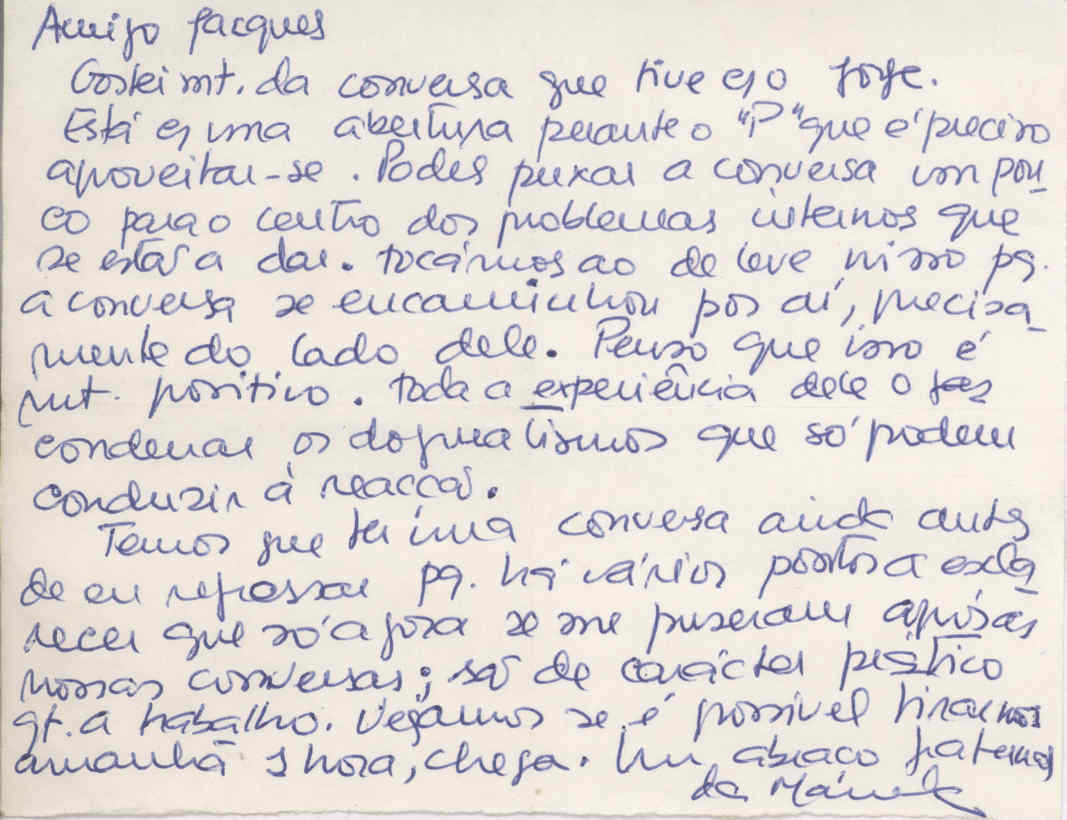 Amigo Jacques
Gostei mt. da conversa que tive c/ o Jorge.
Está c/ uma abertura perante o "P" que é preciso
aproveitar-se. Podes puxar a conversa um pou-
co para o centro dos problemas internos que
se está a dar. Tocámos ao de leve nisso pq.
a conversa se encaminhou por aí, precisa-
mente do lado dele. Penso que isso é
mt. positivo. Toda a experiência dele o faz
condenar os dogmatismos que só podem
conduzir à reacção.
Temos que ter uma conversa ainda antes
de eu regressar pq. há vários pontos a escla-
recer que só agora se me puseram após as
nossas conversas; são de carácter prático
qt. a trabalho. Vejamos se é possível tirarmos
amanhã 1 hora, chega. Um abraço fraterno
da